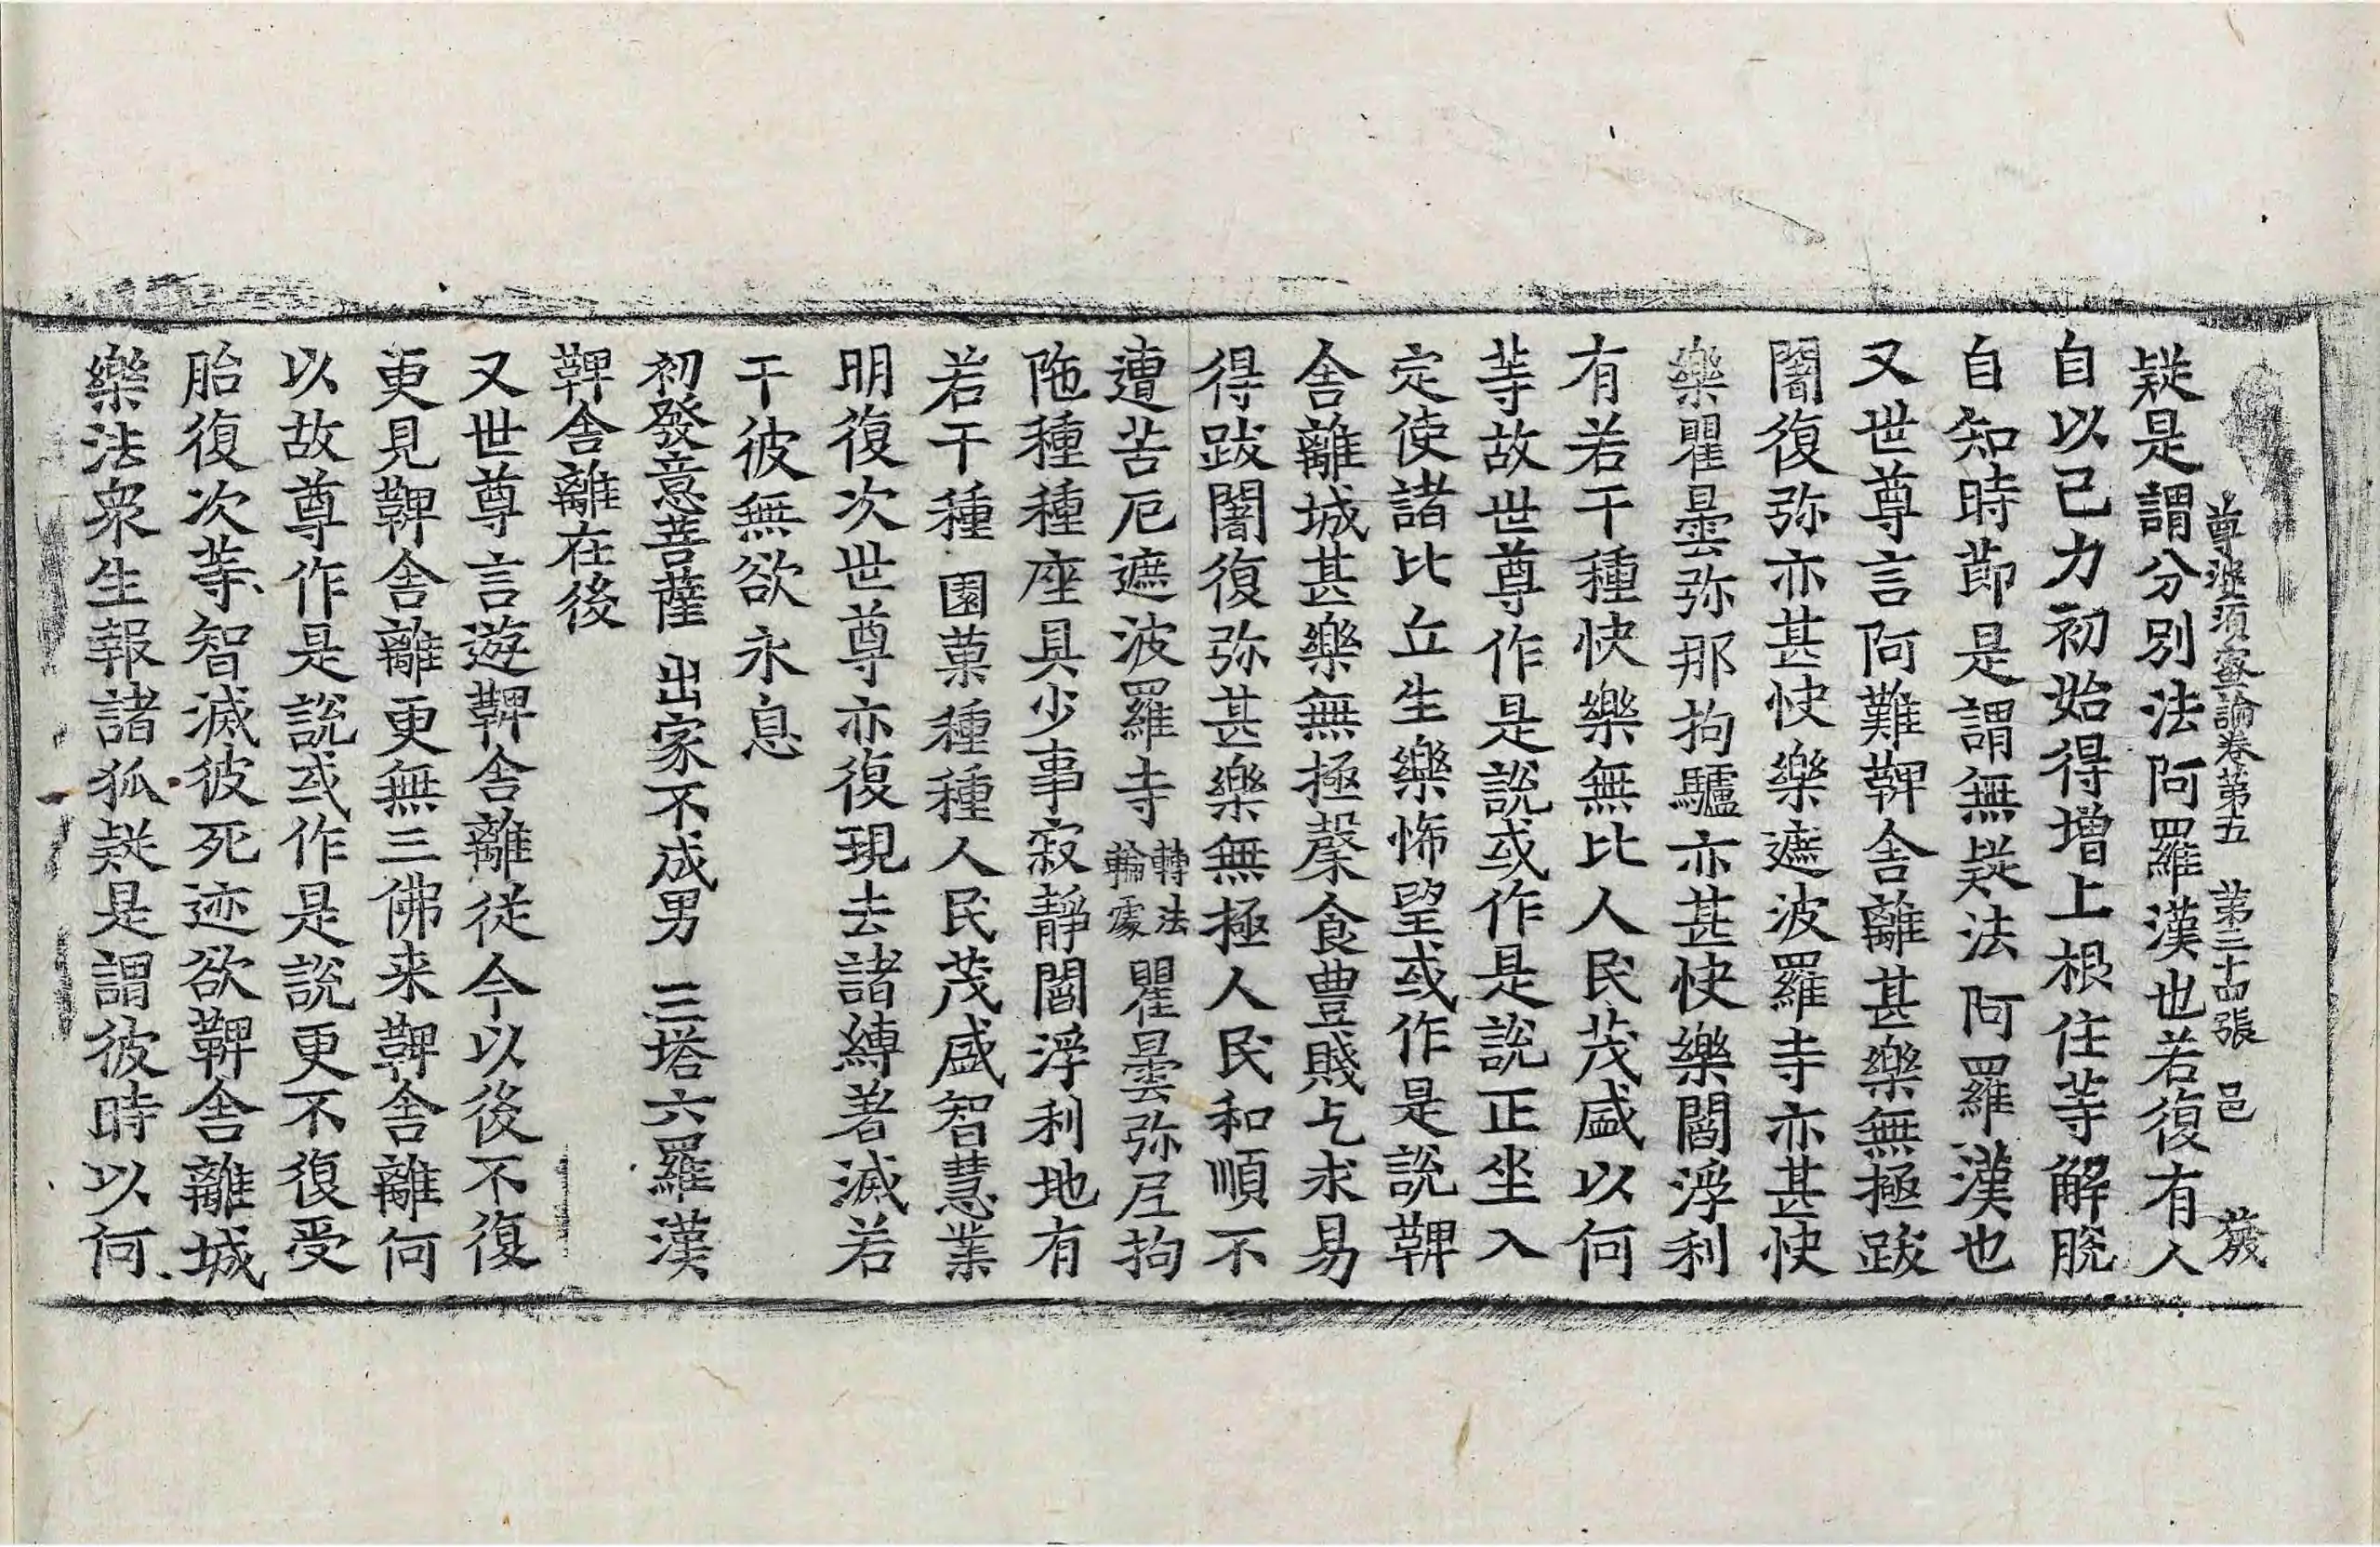 尊婆須蜜論卷第五 第三十四張 邑 發
疑是謂分別法阿羅漢也若復有人
自以己力初始得增上根住等解脫
自知時節是謂無疑法阿羅漢也
又世尊言阿難鞞舍離甚樂無極跋
闍復弥亦甚快樂遮波羅寺亦甚快
樂瞿曇弥那拘驢亦甚快樂閻浮利
有若干種快樂無比人民茂盛以何
等故世尊作是說或作是說正坐入
定使諸比丘生樂怖望或作是說鞞
舍離城甚樂無極馨食豊賤乞求易
得跋闍復弥甚樂無極人民和順不
遭苦厄遮波羅寺轉法輪處瞿曇弥尼拘
陁種種座具少事寂靜閻浮利地有
若干種園菓種種人民茂盛智慧業
明復次世尊亦復現去諸縛著滅若
干彼無欲永息
初發意菩薩 出家不成男 三塔六羅漢
鞞舍離在後
又世尊言遊鞞舍離從今以後不復
更見鞞舍離更無三佛来鞞舍離何
以故尊作是說或作是說更不復受
胎復次等智滅彼死迹欲鞞舍離城
樂法衆生報諸狐疑是謂彼時以何